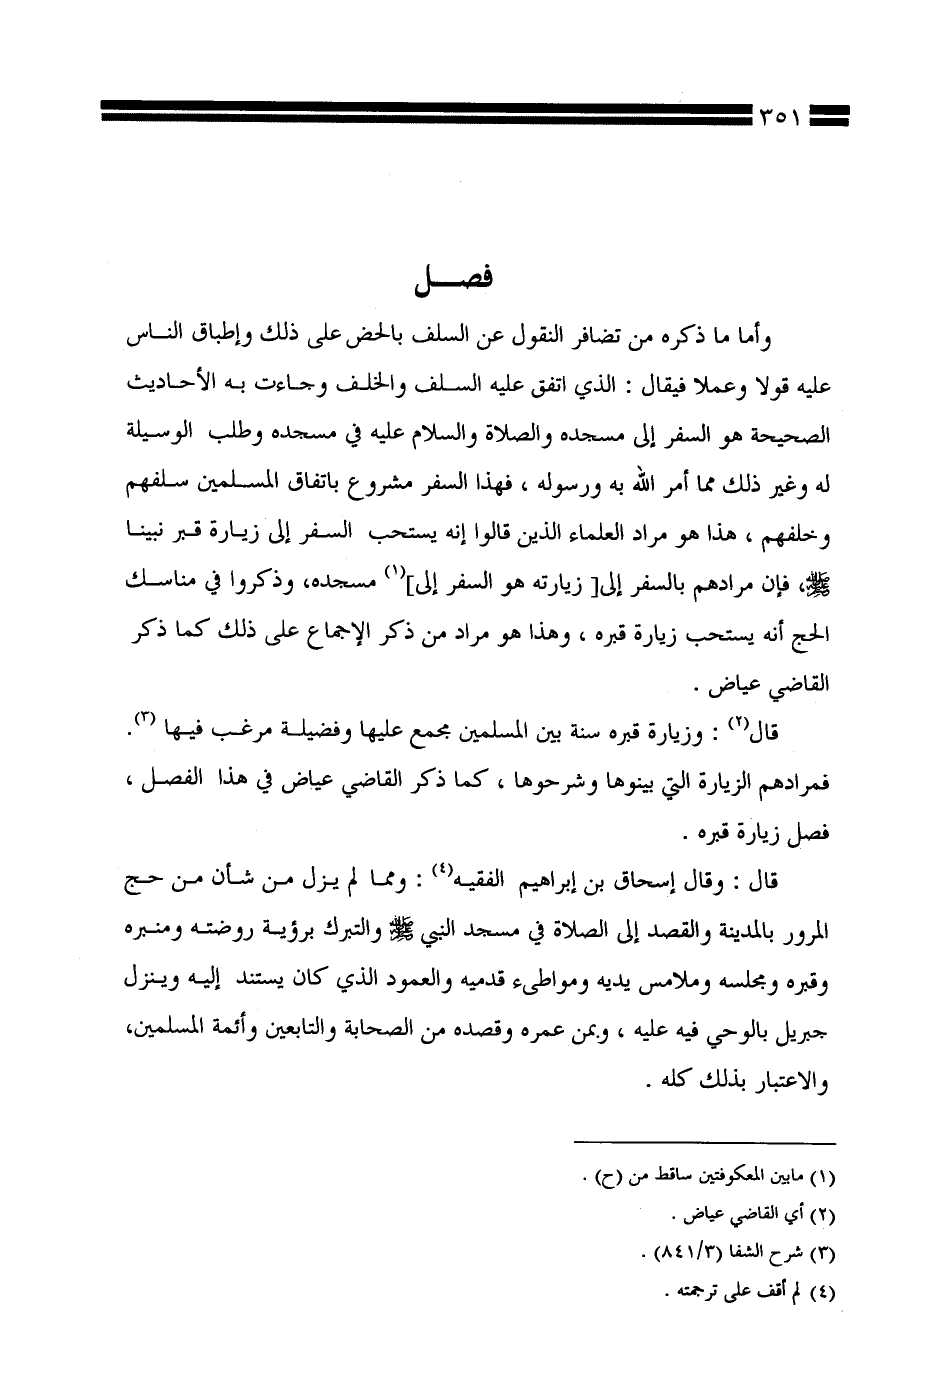 ٣٥١
فصـــل
وأما ما ذكره من تضافر النقول عن السلف بالحض على ذلك وإطباق النـاس
عليه قولا وعملا فيقال : الذي اتفق عليه السـلف والخلـف وجـاءت بـه الأحـاديث
الصحيحة هو السفر إلى مسجده والصلاة والسلام عليه في مسجده وطلب الوسيلة
له وغير ذلك مما أمر الله به ورسوله ، فهذا السفر مشروع باتفاق المسـلمين سـلفهم
وخلفهم ، هذا هو مراد العلماء الذين قالوا إنه يستحب السـفر إلى زيـارة قـبر نبينـا
ﷺ، فإن مرادهم بالسفر إلى[ زيارته هو السفر إلى](١) مسجده، وذكروا في مناسـك
الحج أنه يستحب زيارة قبره ، وهذا هو مراد من ذكر الإجماع على ذلك كما ذكر
القاضي عياض .
قال(٢) : وزيارة قبره سنة بين المسلمين مجمع عليها وفضيلـة مرغـب فيـها (٣).
فمرادهم الزيارة التي بينوها وشرحوها ، كما ذكر القاضي عياض في هذا الفصـل ،
فصل زيارة قبره .
قال : وقال إسحاق بن إبراهيم الفقيـه(٤) : وممـا لم يـزل مـن شـأن مـن حـج
المرور بالمدينة والقصد إلى الصلاة في مسجد النبي ﷺ والتبرك برؤيـة روضتـه ومنـبره
وقبره ومجلسه وملامس يديه ومواطىء قدميه والعمود الذي كان يستند إليـه ويـنزل
جبريل بالوحي فيه عليه ، وبمن عمره وقصده من الصحابة والتابعين وأئمة المسلمين،
والاعتبار بذلك كله .
(١) مابين المعكوفتين ساقط من (ح) .
(٢) أي القاضي عياض .
(٣) شرح الشفا (٨٤١/٣) .
(٤) لم أقف على ترجمته .